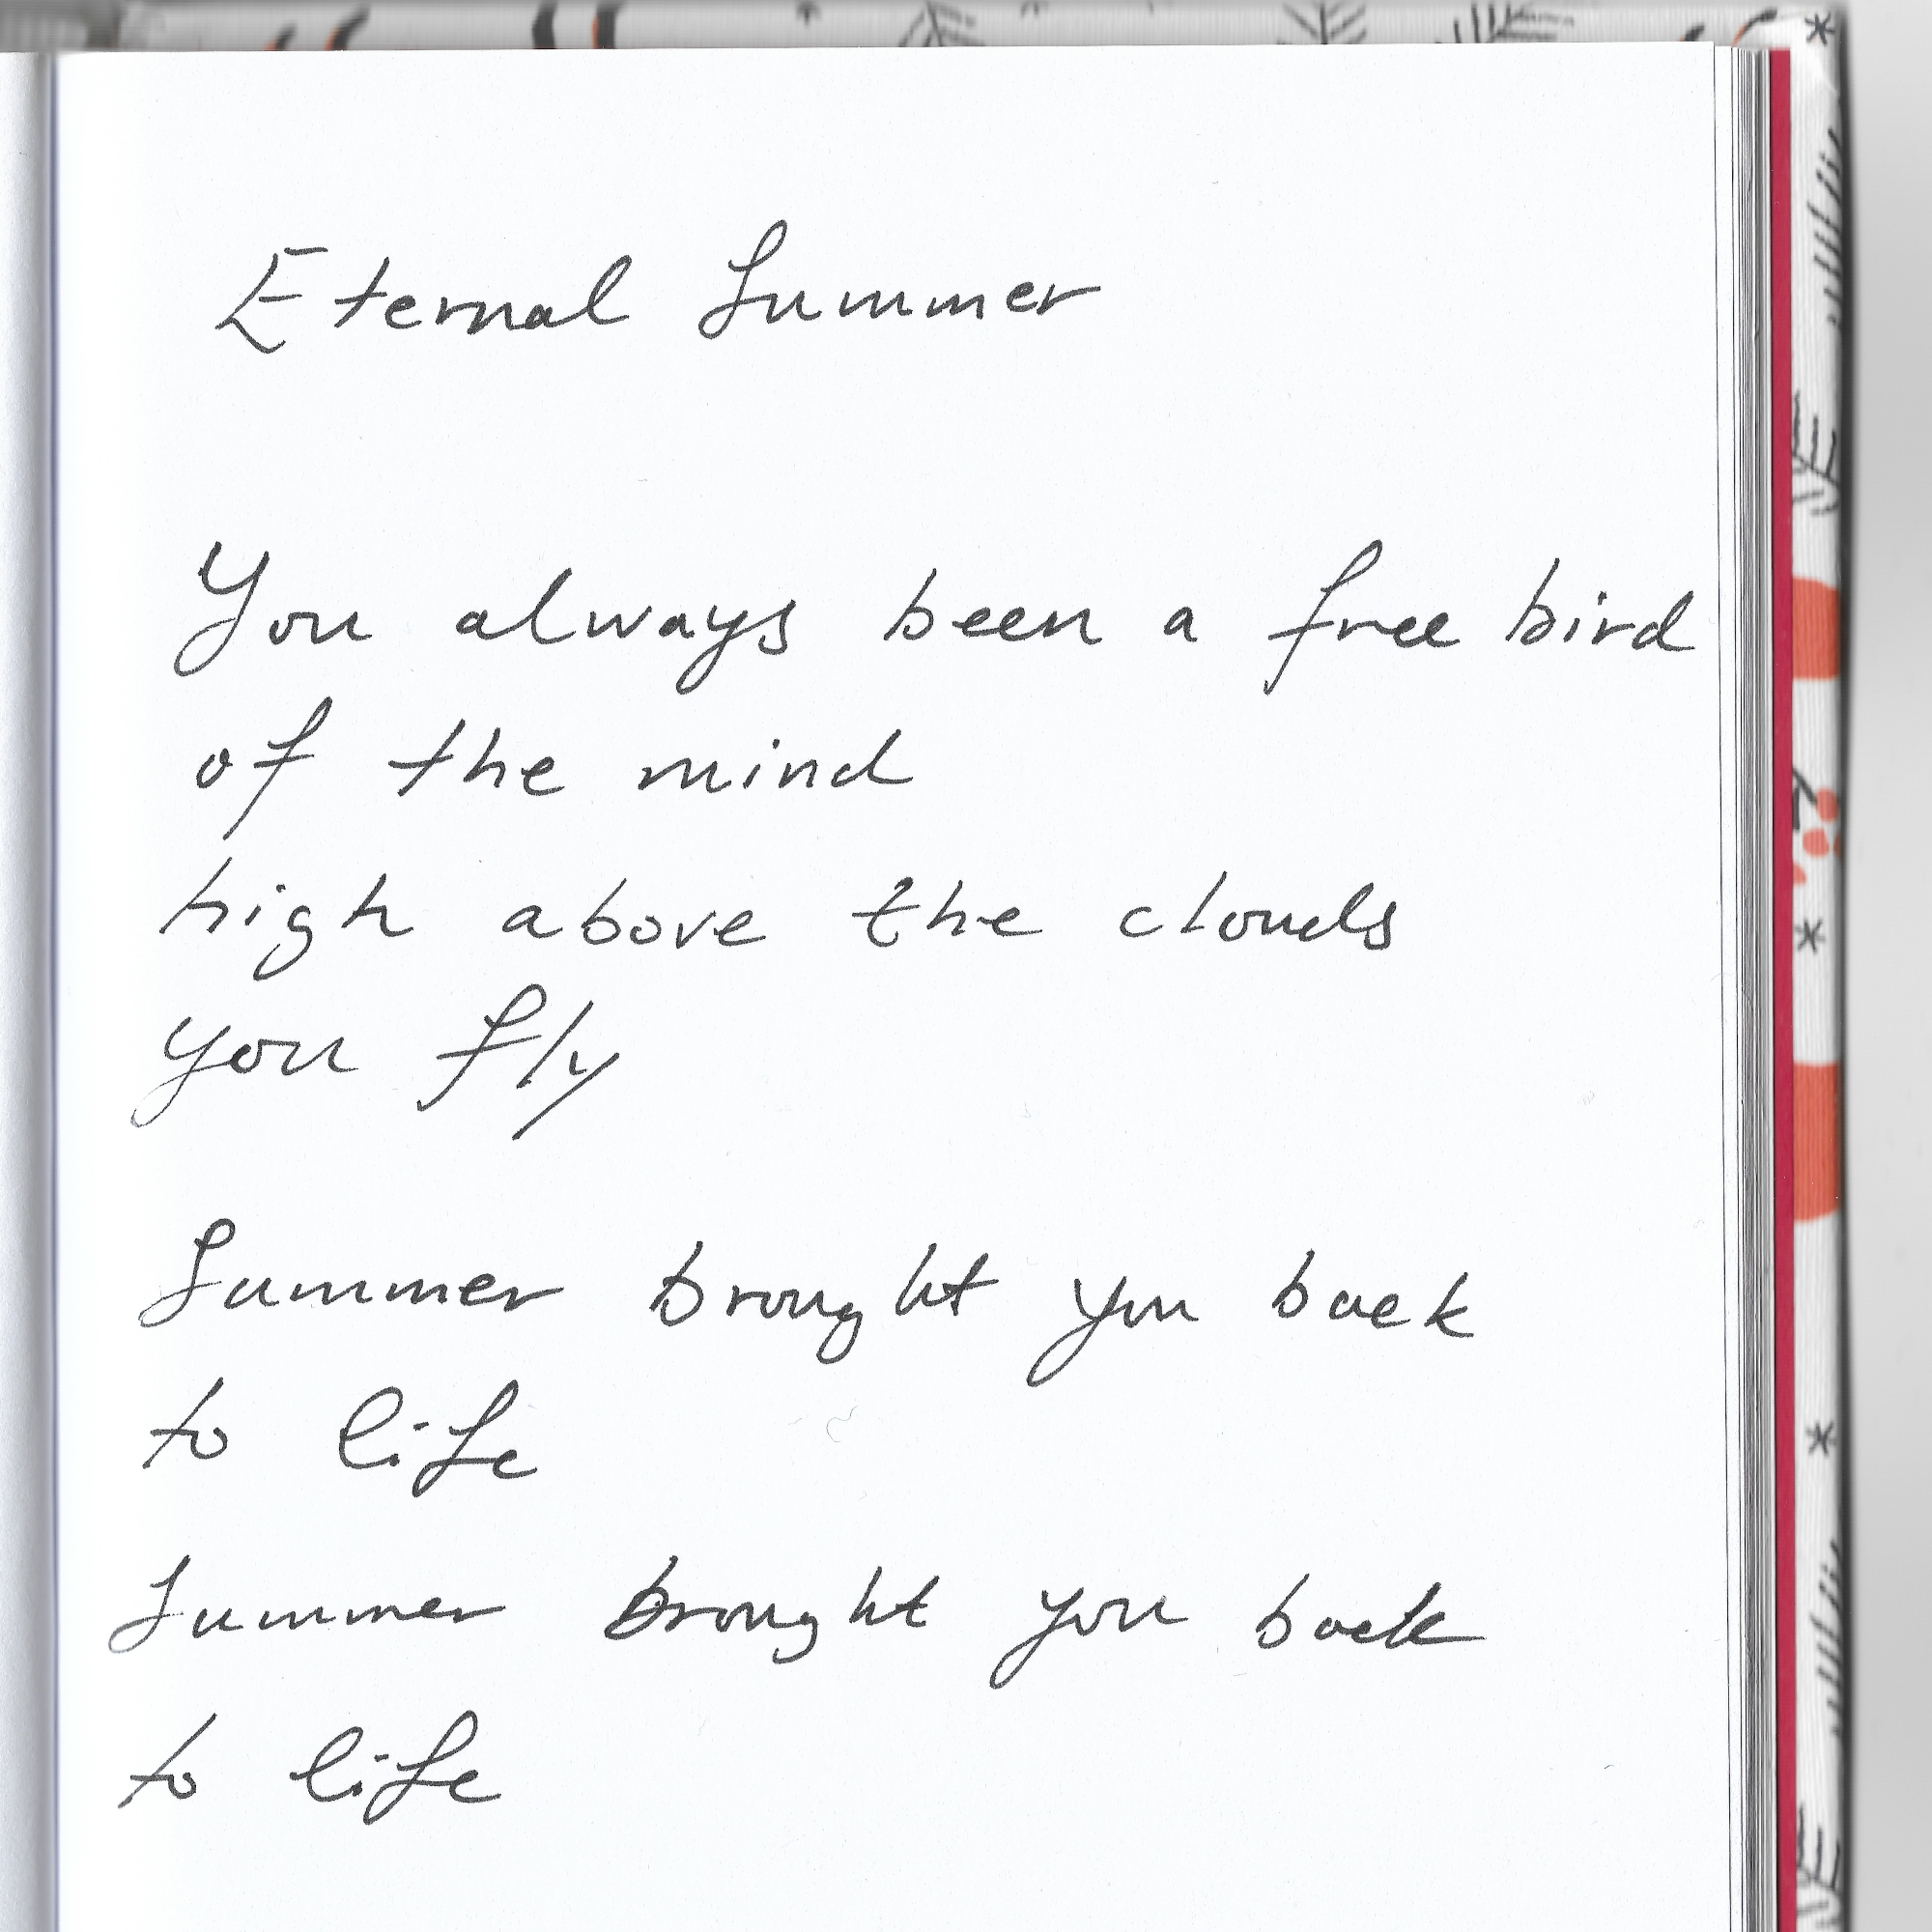 Eternal Summer
You always been a free bird
of the mind
high above the clouds
you fly
Summer brought you back
to life
Summer brought you back
to life